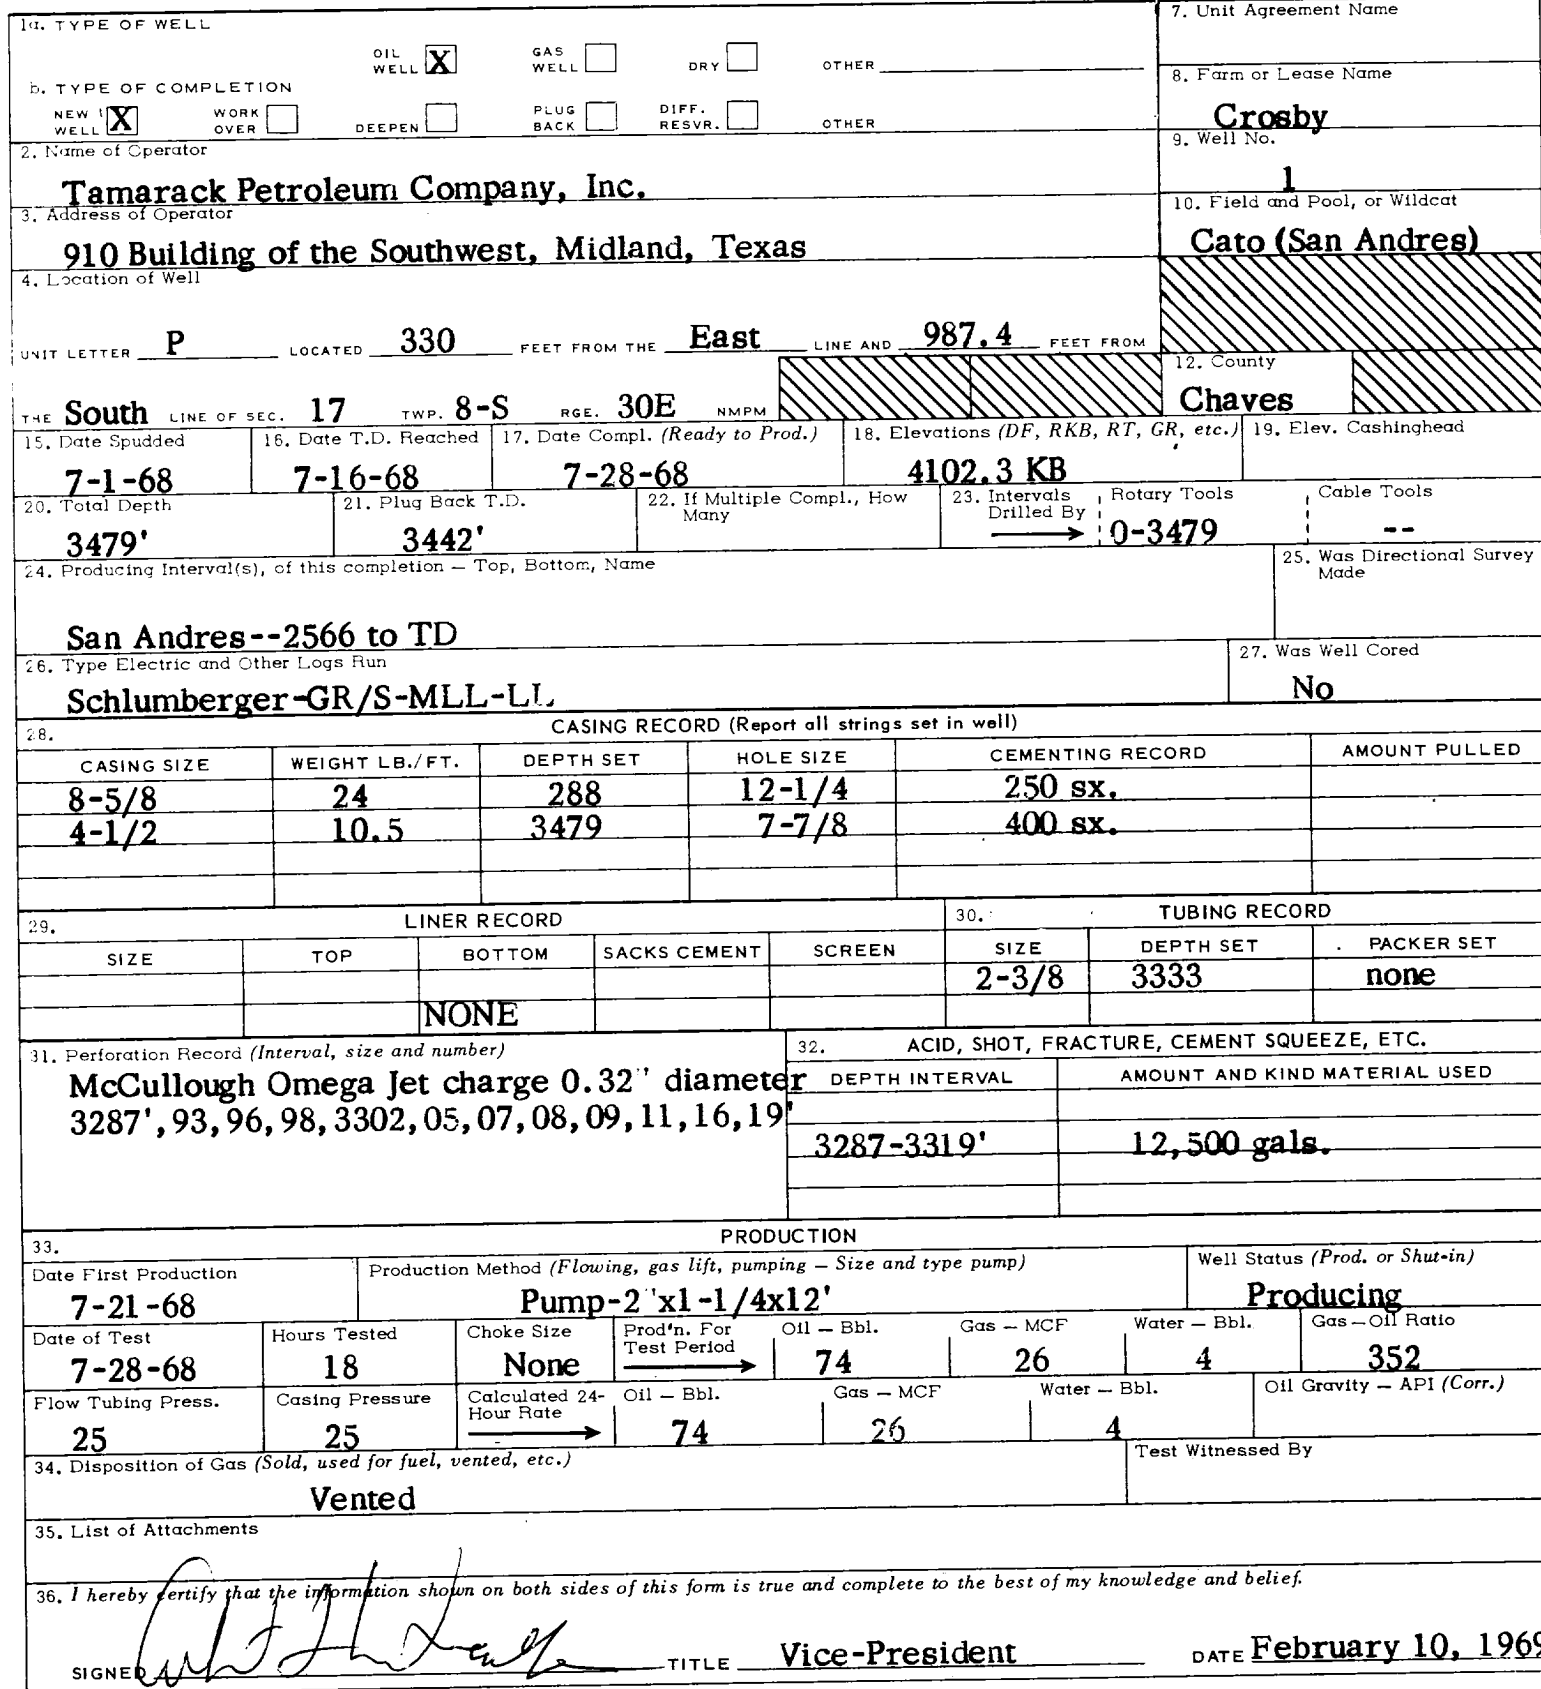 1a. TYPE OF WELL
OIL WELL X GAS WELL DRY OTHER
b. TYPE OF COMPLETION
NEW WELL X WORK OVER DEEPEN PLUG BACK DIFF. RESVR. OTHER
7. Unit Agreement Name
8. Farm or Lease Name
Crosby
2. Name of Operator
Tamarack Petroleum Company, Inc.
9. Well No.
1
3. Address of Operator
910 Building of the Southwest, Midland, Texas
10. Field and Pool, or Wildcat
Cato (San Andres)
4. Location of Well
UNIT LETTER P LOCATED 330 FEET FROM THE East LINE AND 987.4 FEET FROM
THE South LINE OF SEC. 17 TWP. 8-S RGE. 30E NMPM
12. County
Chaves
15. Date Spudded 16. Date T.D. Reached 17. Date Compl. (Ready to Prod.) 18. Elevations (DF, RKB, RT, GR, etc.) 19. Elev. Cashinghead
7-1-68 7-16-68 7-28-68 4102.3 KB
20. Total Depth 21. Plug Back T.D. 22. If Multiple Compl., How Many 23. Intervals Drilled By Rotary Tools Cable Tools
3479' 3442' 0-3479 --
24. Producing Interval(s), of this completion — Top, Bottom, Name
25. Was Directional Survey Made
San Andres--2566 to TD
26. Type Electric and Other Logs Run
27. Was Well Cored
Schlumberger-GR/S-MLL-LL
No
28. CASING RECORD (Report all strings set in well)
CASING SIZE WEIGHT LB./FT. DEPTH SET HOLE SIZE CEMENTING RECORD AMOUNT PULLED
8-5/8 24 288 12-1/4 250 sx.
4-1/2 10.5 3479 7-7/8 400 sx.
29. LINER RECORD
30. TUBING RECORD
SIZE TOP BOTTOM SACKS CEMENT SCREEN SIZE DEPTH SET PACKER SET
2-3/8 3333 none
NONE
31. Perforation Record (Interval, size and number)
McCullough Omega Jet charge 0.32" diameter
3287',93,96,98,3302,05,07,08,09,11,16,19'
32. ACID, SHOT, FRACTURE, CEMENT SQUEEZE, ETC.
DEPTH INTERVAL AMOUNT AND KIND MATERIAL USED
3287-3319' 12,500 gals.
33. PRODUCTION
Date First Production Production Method (Flowing, gas lift, pumping — Size and type pump) Well Status (Prod. or Shut-in)
7-21-68 Pump-2"x1-1/4x12' Producing
Date of Test Hours Tested Choke Size Prod'n. For Test Period Oil — Bbl. Gas — MCF Water — Bbl. Gas—Oil Ratio
7-28-68 18 None 74 26 4 352
Flow Tubing Press. Casing Pressure Calculated 24-Hour Rate Oil — Bbl. Gas — MCF Water — Bbl. Oil Gravity — API (Corr.)
25 25 74 26 4
34. Disposition of Gas (Sold, used for fuel, vented, etc.)
Test Witnessed By
Vented
35. List of Attachments
36. I hereby certify that the information shown on both sides of this form is true and complete to the best of my knowledge and belief.
SIGNED TITLE Vice-President DATE February 10, 1969